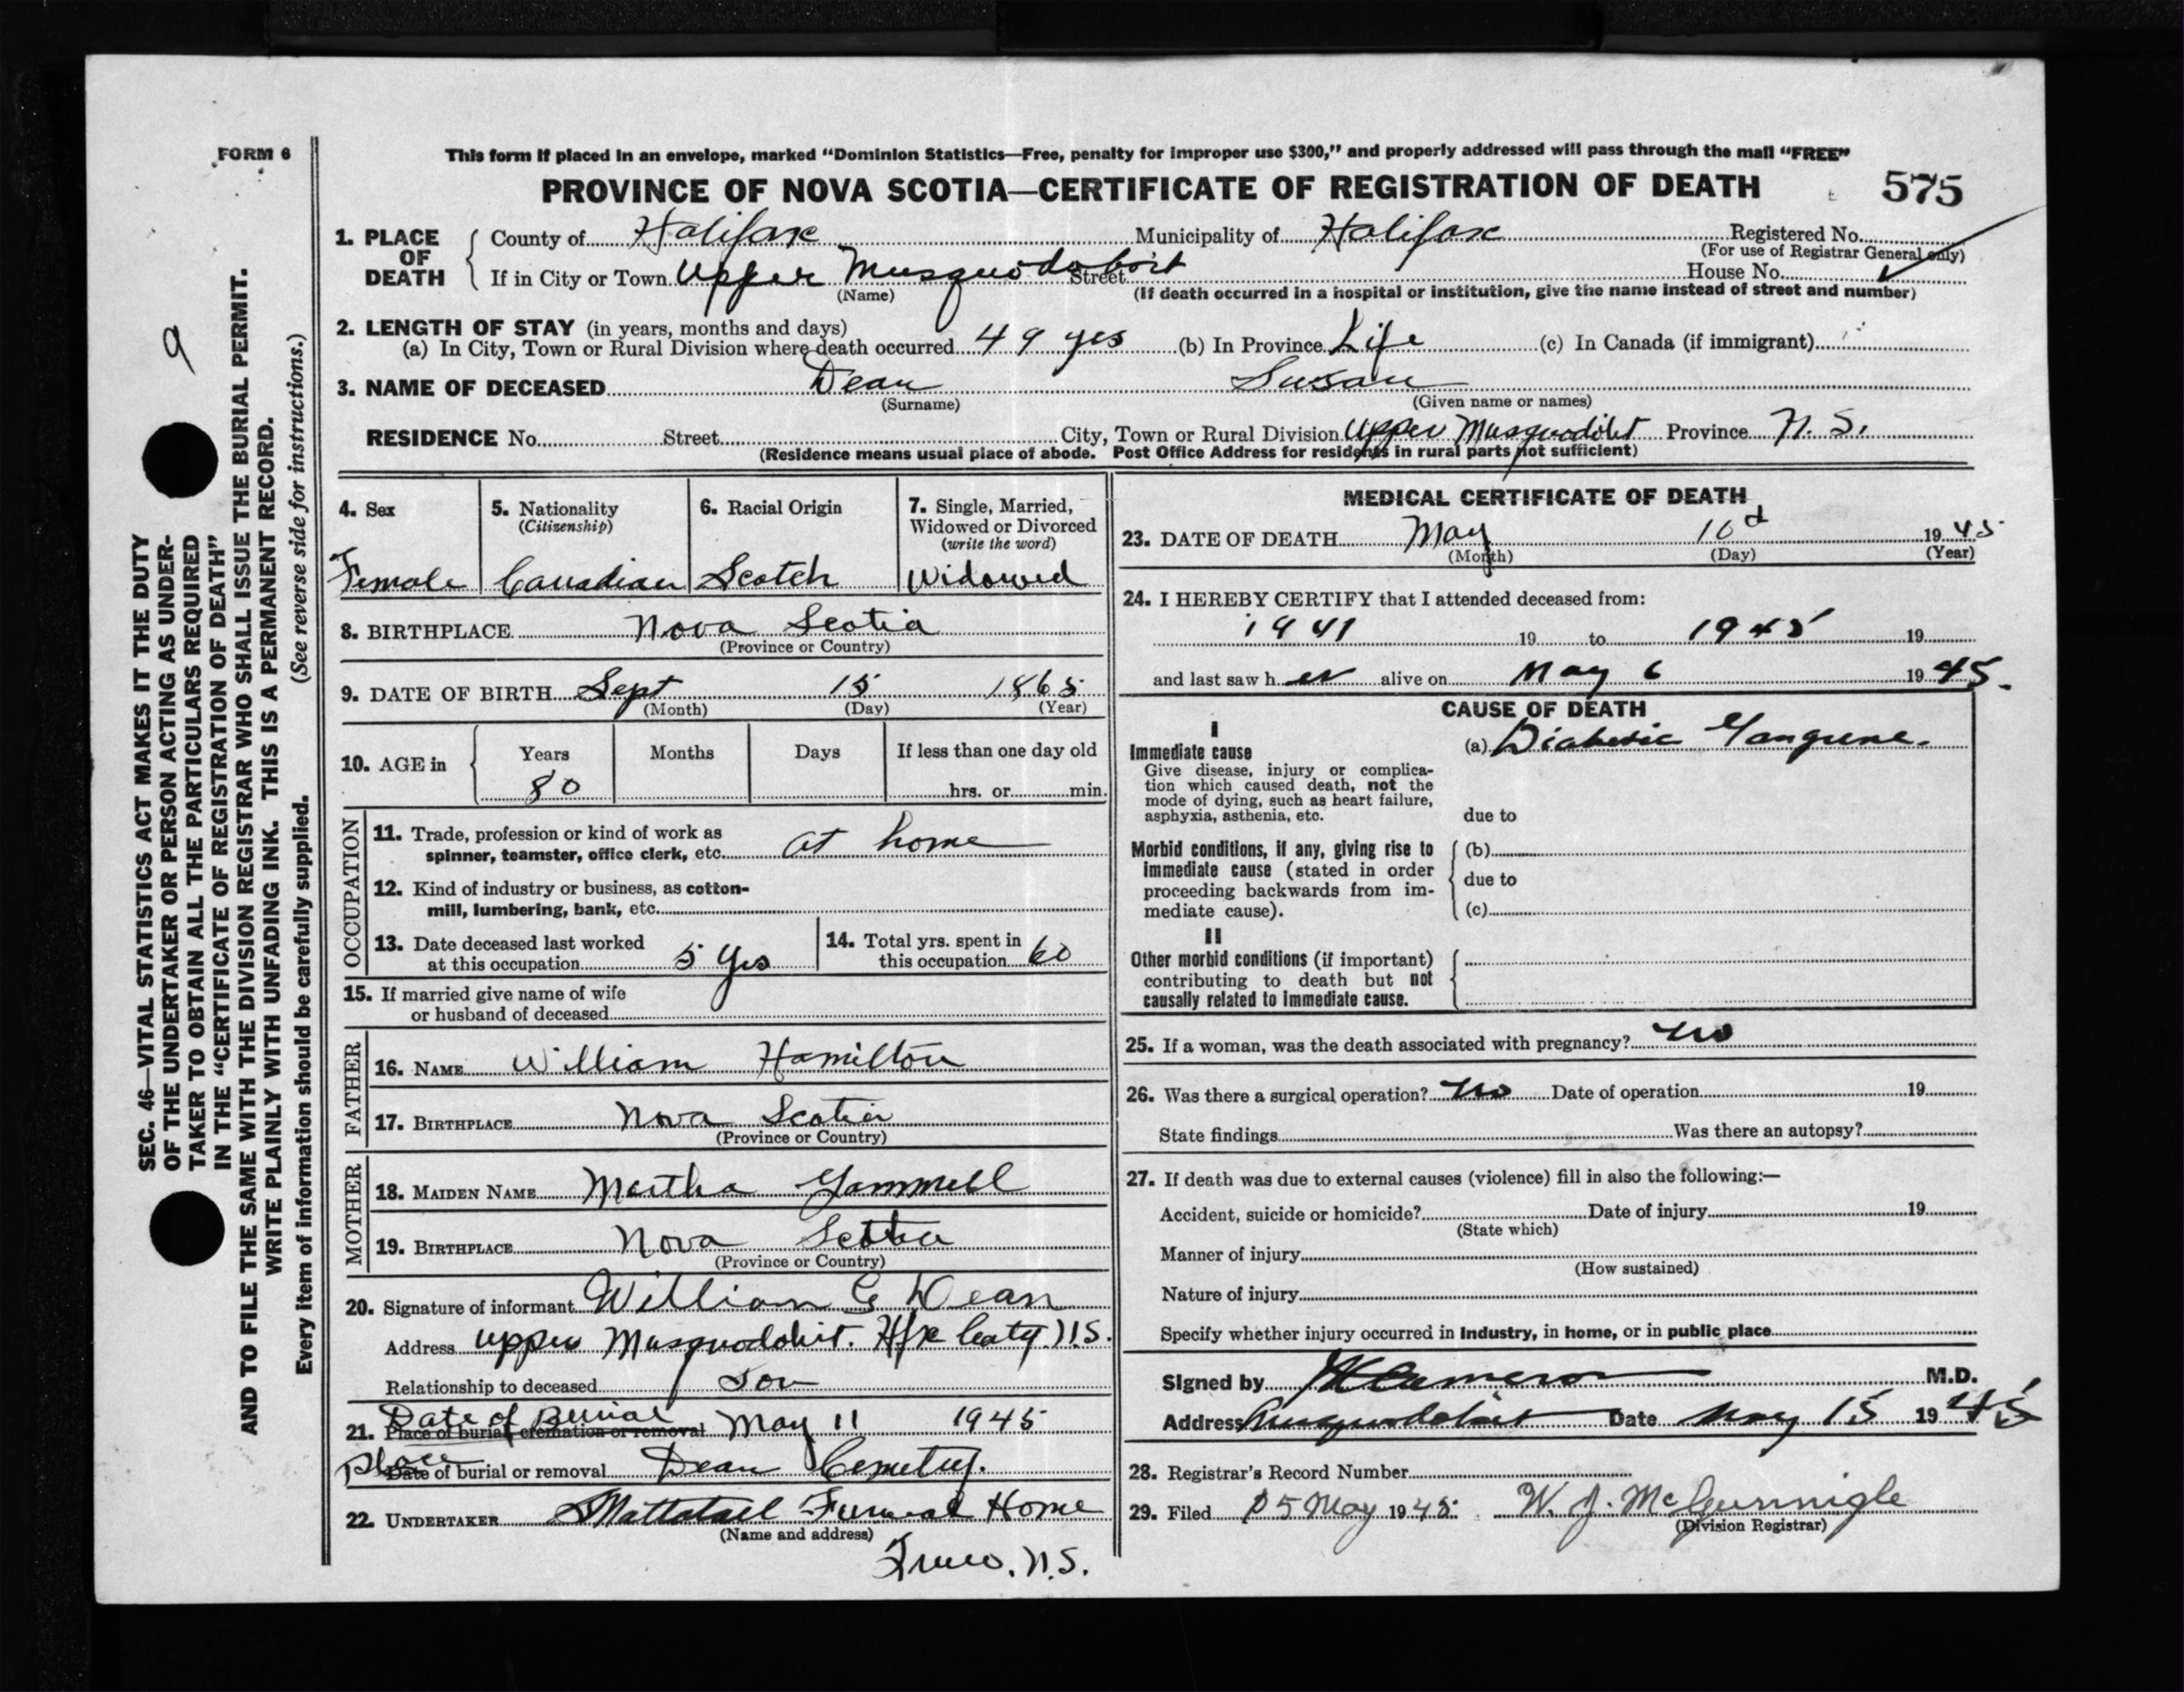 FORM 6
This form if placed in an envelope, marked “Dominion Statistics—Free, penalty for improper use $300,” and properly addressed will pass through the mail “FREE”
PROVINCE OF NOVA SCOTIA—CERTIFICATE OF REGISTRATION OF DEATH 575
1. PLACE OF DEATH
County of Halifax Municipality of Halifax Registered No.
(For use of Registrar General only)
If in City or Town Upper Musquodoboit Street House No.
(Name) (If death occurred in a hospital or institution, give the name instead of street and number)
2. LENGTH OF STAY (in years, months and days)
(a) In City, Town or Rural Division where death occurred 49 yes (b) In Province Life (c) In Canada (if immigrant)
3. NAME OF DECEASED Dean Susan
(Surname) (Given name or names)
RESIDENCE No. Street City, Town or Rural Division Upper Musquodobit Province N. S.
(Residence means usual place of abode. Post Office Address for residents in rural parts not sufficient)
4. Sex
Female
5. Nationality
(Citizenship)
Canadian
6. Racial Origin
Scotch
7. Single, Married,
Widowed or Divorced
(write the word)
Widowed
8. BIRTHPLACE Nova Scotia
(Province or Country)
9. DATE OF BIRTH Sept 15 1865
(Month) (Day) (Year)
10. AGE in Years Months Days If less than one day old
80 hrs. or min.
OCCUPATION
11. Trade, profession or kind of work as
spinner, teamster, office clerk, etc. at home
12. Kind of industry or business, as cotton-
mill, lumbering, bank, etc.
13. Date deceased last worked
at this occupation 5 yes
14. Total yrs. spent in
this occupation 60
15. If married give name of wife
or husband of deceased
FATHER
16. NAME William Hamilton
17. BIRTHPLACE Nova Scotia
(Province or Country)
MOTHER
18. MAIDEN NAME Martha Gammell
19. BIRTHPLACE Nova Scotia
(Province or Country)
20. Signature of informant William G Dean
Address Upper Musquodobit. Hfx Conty. N.S.
Relationship to deceased Son
Date of Burial
21. Place of burial, cremation or removal May 11 1945
Place
Date of burial or removal Dean Cemetry.
22. UNDERTAKER Mattatall Funeral Home
(Name and address)
Truro. N.S.
MEDICAL CERTIFICATE OF DEATH
23. DATE OF DEATH May 10d 1945
(Month) (Day) (Year)
24. I HEREBY CERTIFY that I attended deceased from:
1941 19 to 1945 19
and last saw her alive on May 6 1945.
CAUSE OF DEATH
I
Immediate cause (a) Diabetic Gangrene.
Give disease, injury or complica-
tion which caused death, not the
mode of dying, such as heart failure,
asphyxia, asthenia, etc. due to
Morbid conditions, if any, giving rise to (b)
immediate cause (stated in order
proceeding backwards from im- due to
mediate cause). (c)
II
Other morbid conditions (if important)
contributing to death but not
causally related to immediate cause.
25. If a woman, was the death associated with pregnancy? no
26. Was there a surgical operation? no Date of operation 19
State findings Was there an autopsy?
27. If death was due to external causes (violence) fill in also the following:—
Accident, suicide or homicide? Date of injury 19
(State which)
Manner of injury
(How sustained)
Nature of injury
Specify whether injury occurred in industry, in home, or in public place
Signed by Cameron M.D.
Address Musquodoboit Date May 15 1945
28. Registrar's Record Number
29. Filed 15 May 1945. W. J. McGunnigle
(Division Registrar)
9
SEC. 46—VITAL STATISTICS ACT MAKES IT THE DUTY
OF THE UNDERTAKER OR PERSON ACTING AS UNDER-
TAKER TO OBTAIN ALL THE PARTICULARS REQUIRED
IN THE “CERTIFICATE OF REGISTRATION OF DEATH”
AND TO FILE THE SAME WITH THE DIVISION REGISTRAR WHO SHALL ISSUE THE BURIAL PERMIT.
WRITE PLAINLY WITH UNFADING INK. THIS IS A PERMANENT RECORD.
Every item of information should be carefully supplied. (See reverse side for instructions.)